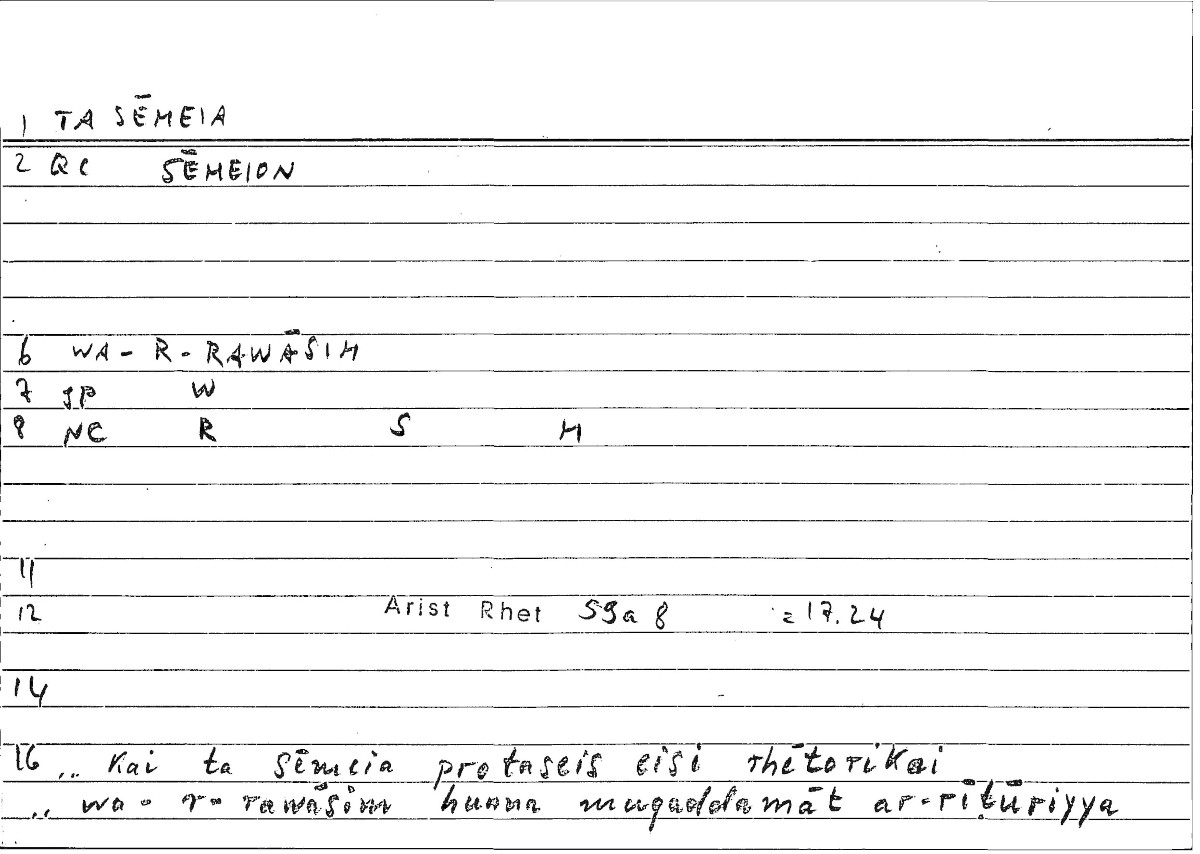 1 TA SĒMEIA
2 QC SĒMEION
6 WA-R-RAWĀSIM
7 JP W
8 NC R S M
11
12 Arist Rhet 59a 8 = 17.24
14
16 .. kai ta sēmeia protaseis eisi rhētorikai
.. wa-r-rawāsim hunna muqaddamāt ar-rīṭūriyya